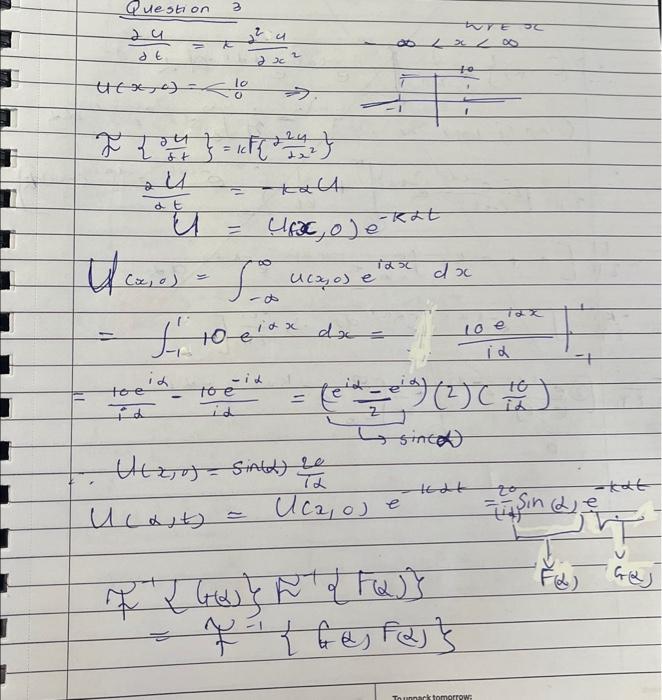 Question 3
wrt x
∂u/∂t = k ∂²u/∂x² - ∞ < x < ∞
u(x,0) = < 10 0 ⇒ 10 -1 1
F { ∂u/∂t } = k F { ∂²u/∂x² }
∂U/∂t = -kαU
U = U(x,0) e^-kαt
U(x,0) = ∫_-∞^∞ u(x,0) e^iαx dx
= ∫_-1^1 10 e^iαx dx = 10 e^iαx / iα |_-1^1
= 10e^iα / iα - 10e^-iα / iα = (e^iα - e^iα / 2) (2) (10/iα)
↳ sin(α)
∴ U(x,0) = sin(α) 20/iα
U(α,t) = U(x,0) e^-kαt = 20/(iα) sin(α) e^-kαt
F(α) G(α)
F^-1 { G(α) } F^-1 { F(α) }
= F^-1 { G(α) F(α) }
To unpack tomorrow: